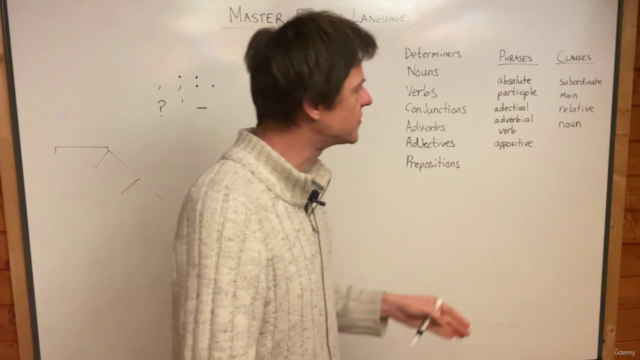 MASTER
LANGUAGE.
, ; : .
? ' –
Determiners
Nouns
Verbs
Conjunctions
Adverbs
Adjectives
Prepositions
PHRASES
absolute
participle
adjectival
adverbial
verb
appositive
CLAUSES
subordinate
main
relative
noun
ûdemy